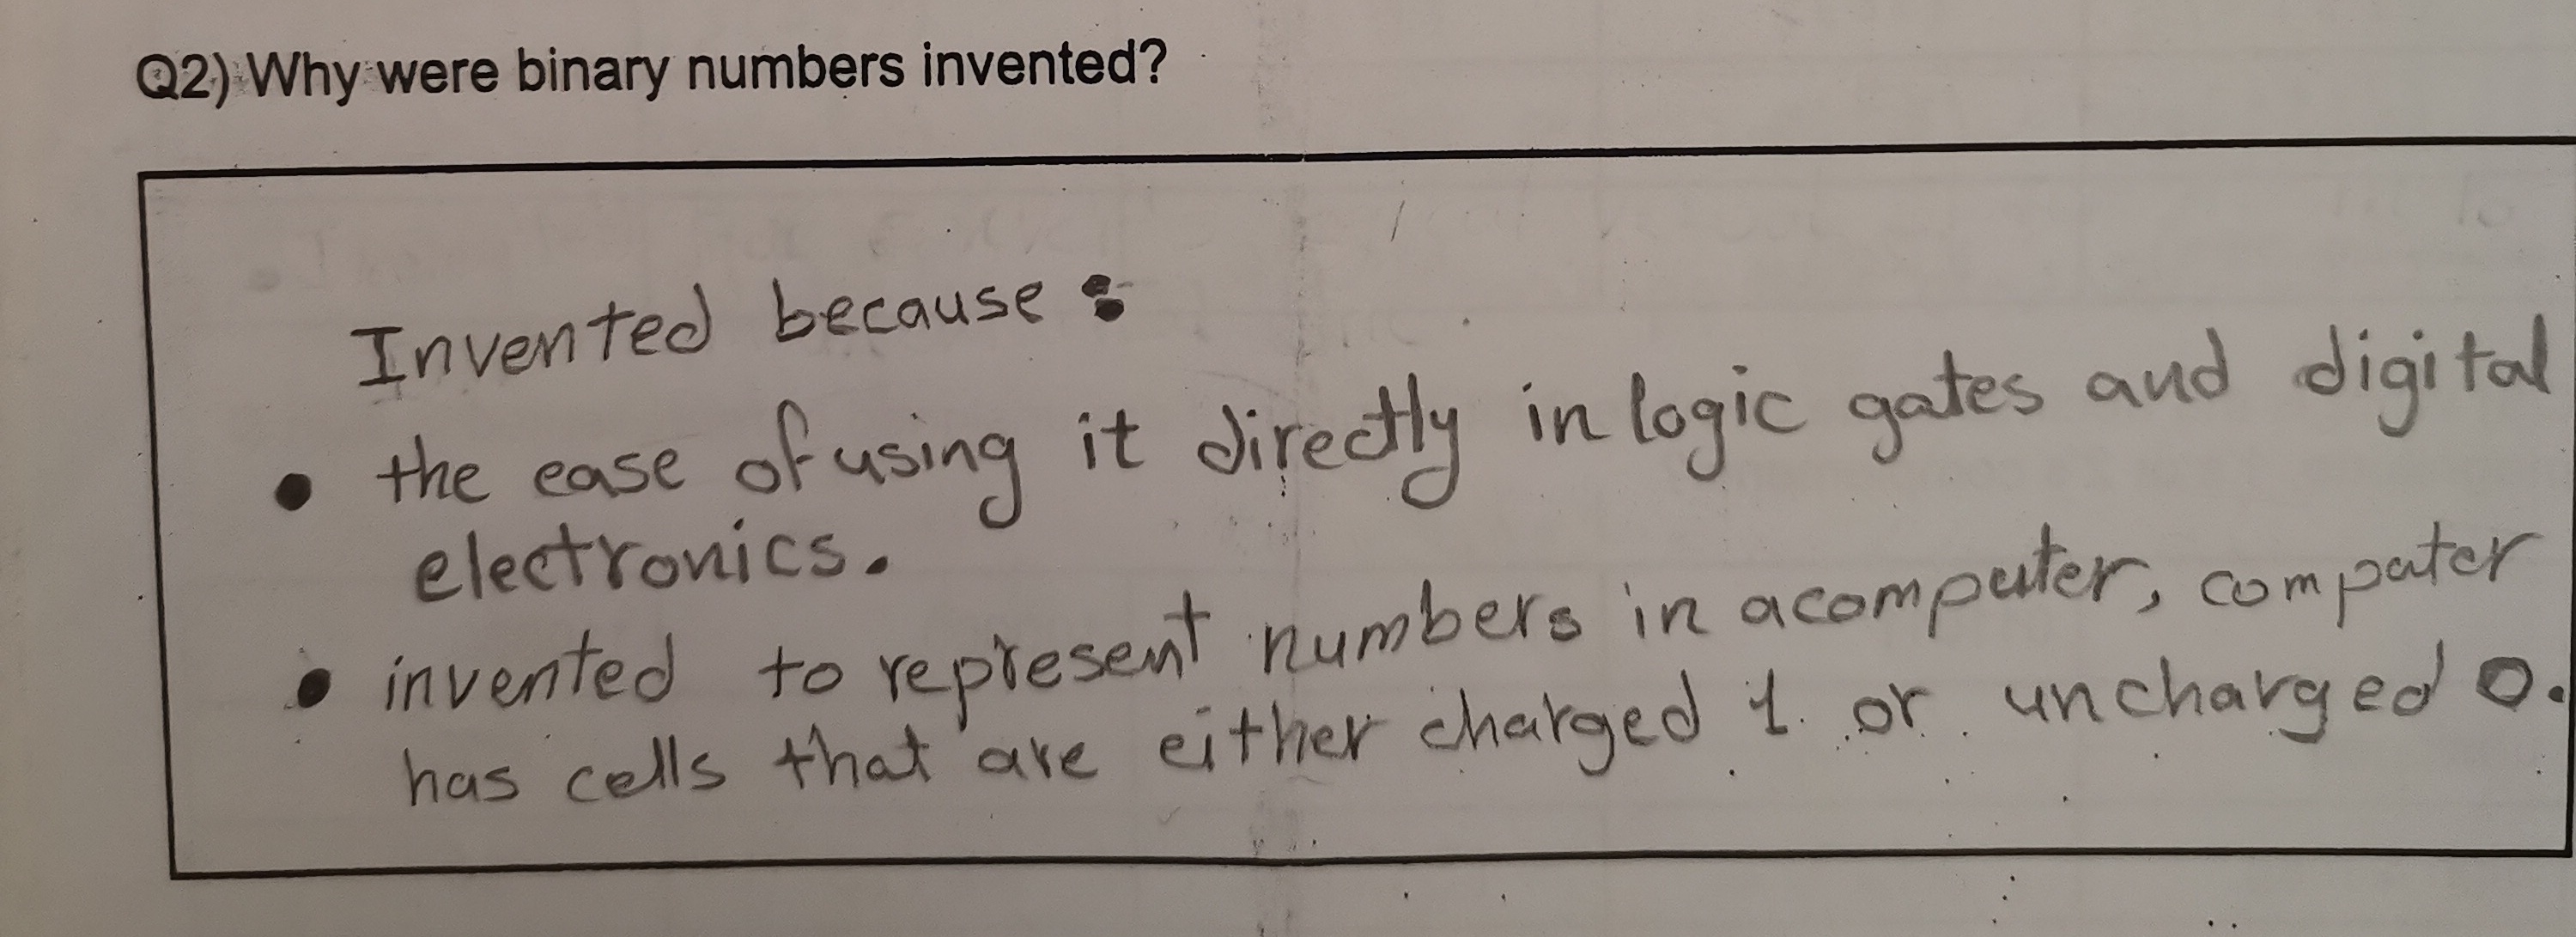 Q2) Why were binary numbers invented?
Invented because :
• the ease of using it directly in logic gates and digital
electronics.
• invented to represent numbers in a computer, computer
has cells that are either charged 1 or uncharged 0.